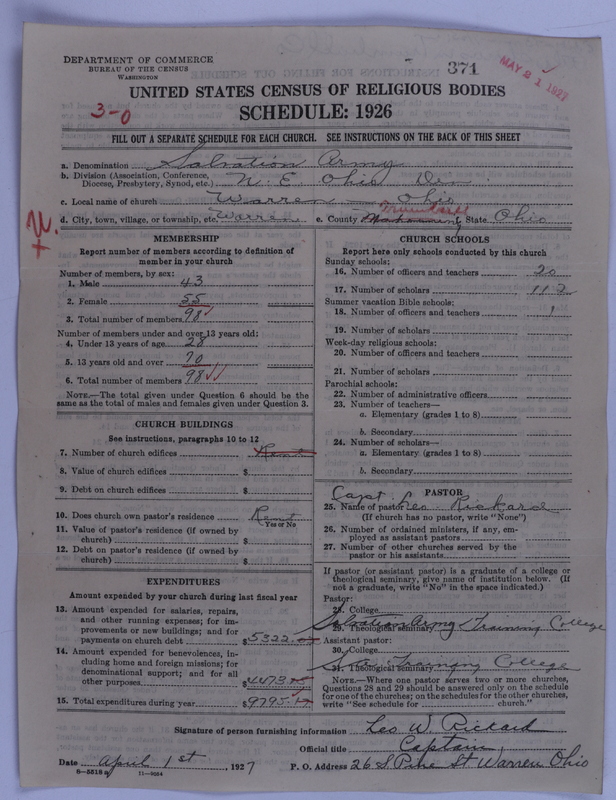 DEPARTMENT OF COMMERCE
BUREAU OF THE CENSUS
WASHINGTON
371
MAY 21 1927
UNITED STATES CENSUS OF RELIGIOUS BODIES
SCHEDULE: 1926
3-0
FILL OUT A SEPARATE SCHEDULE FOR EACH CHURCH. SEE INSTRUCTIONS ON THE BACK OF THIS SHEET
a. Denomination Salvation Army
b. Division (Association, Conference, Diocese, Presbytery, Synod, etc.) N. E. Ohio Div.
c. Local name of church Warren - Ohio
d. City, town, village, or township, etc. Warren e. County Mahoning Trumbull State Ohio
MEMBERSHIP
Report number of members according to definition of
member in your church
Number of members, by sex:
1. Male 43
2. Female 55
3. Total number of members 98
Number of members under and over 13 years old:
4. Under 13 years of age 28
5. 13 years old and over 70
6. Total number of members 98
NOTE.—The total given under Question 6 should be
same as the total of males and females given under Question 3.
CHURCH BUILDINGS
See instructions, paragraphs 10 to 12
7. Number of church edifices Rent
8. Value of church edifices $
9. Debt on church edifices $
10. Does church own pastor's residence Rent
Yes or No
11. Value of pastor's residence (if owned by
church) $
12. Debt on pastor's residence (if owned by
church) $
EXPENDITURES
Amount expended by your church during last fiscal year
13. Amount expended for salaries, repairs,
and other running expenses; for im-
provements or new buildings; and for
payments on church debt $5322.
14. Amount expended for benevolences, in-
cluding home and foreign missions; for
denominational support; and for all
other purposes $4473.
15. Total expenditures during year $9795.
CHURCH SCHOOLS
Report here only schools conducted by this church
Sunday schools:
16. Number of officers and teachers 20
17. Number of scholars 112
Summer vacation Bible schools:
18. Number of officers and teachers 1
19. Number of scholars
Week-day religious schools:
20. Number of officers and teachers
21. Number of scholars
Parochial schools:
22. Number of administrative officers
23. Number of teachers—
a. Elementary (grades 1 to 8)
b. Secondary
24. Number of scholars—
a. Elementary (grades 1 to 8)
b. Secondary
PASTOR
25. Name of pastor Capt. Leo Rickard
(If church has no pastor, write "None")
26. Number of ordained ministers, if any, em-
ployed as assistant pastors
27. Number of other churches served by the
pastor or his assistants
If pastor (or assistant pastor) is a graduate of a college or
theological seminary, give name of institution below. (If
not a graduate, write "No" in the space indicated.)
Pastor:
28. College
29. Theological seminary Salvation Army Training College
Assistant pastor:
30. College
31. Theological seminary Training College
NOTE.—Where one pastor serves two or more churches,
Questions 28 and 29 should be answered only on the schedule
for one of the churches; on the schedules for the other churches,
write "See schedule for church."
Signature of person furnishing information Leo W. Rickard
Official title Captain
Date April 1st, 1927 P. O. Address 26 S Pine St Warren Ohio
8-5518a 11-9054